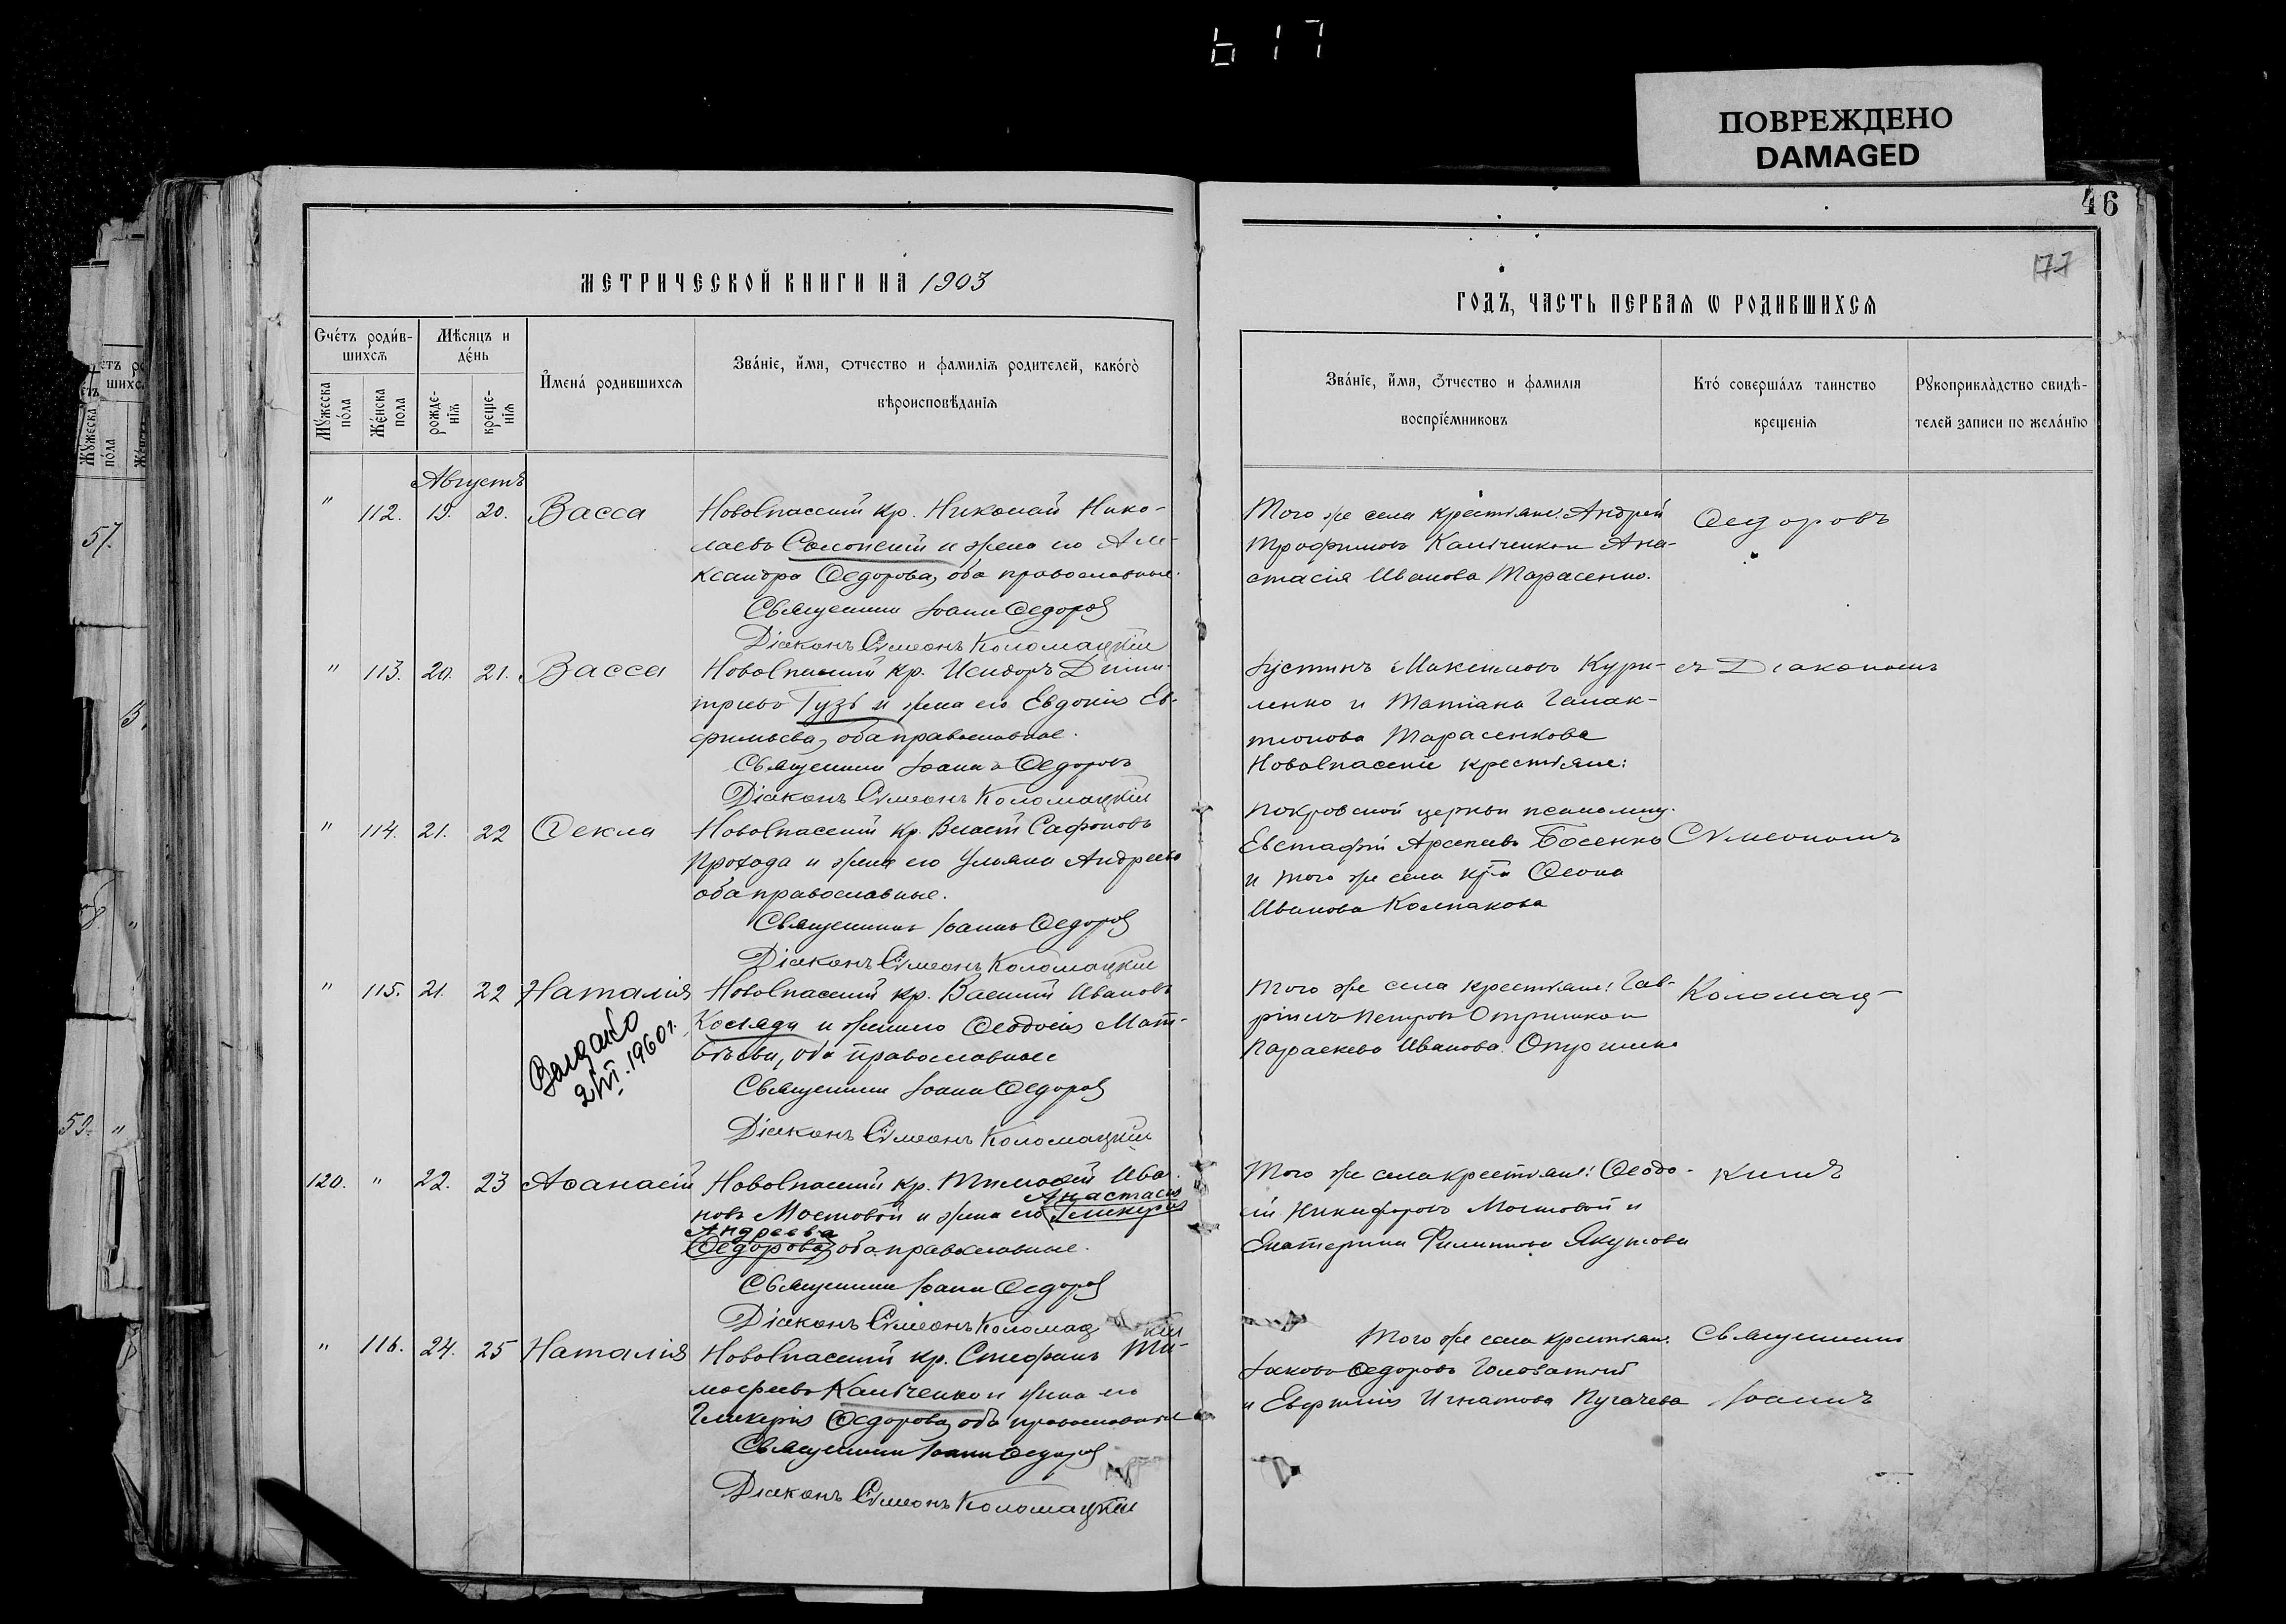 617
ПОВРЕЖДЕНО
DAMAGED
46
177
МЕТРИЧЕСКОЙ КНИГИ НА 1903
ГОДЪ, ЧАСТЬ ПЕРВАЯ Ѡ РОДИВШИХСЯ
Счетъ родив-
шихся
Мѣсяцъ и
день
Имена родившихся
Званіе, имя, отчество и фамилія родителей, какого
вѣроисповѣданія
Мужеска пола
Женска пола
рожде-
нія
креще-
нія
Званіе, имя, отчество и фамилія
воспріемниковъ
Кто совершалъ таинство
крещенія
Рукоприкладство свидѣ-
телей записи по желанію
Августъ
" 112. 19. 20. Васса
Новоспасскій кр. Николай Нико-
лаевъ и жена его Але-
ксандра Ѳедорова, оба православные.
Священникъ Іоаннъ Ѳедоровъ
Діаконъ Симеонъ Коломацкій
Того же села крестьяне: Андрей
Трофимовъ Калѣченко и Ана-
стасія Иванова Тарасенко.
Ѳедоровъ
" 113. 20. 21. Васса
Новоспасскій кр. Исидоръ Дими-
тріевъ Гузь и жена его Евдокія Ев-
фимьева, оба православные.
Священникъ Іоаннъ Ѳедоровъ
Діаконъ Симеонъ Коломацкій
Іустинъ Максимовъ Кури-
ленко и Татіана Галак-
тіонова Тарасенкова
Новоспасскіе крестьяне.
съ Діакономъ
" 114. 21. 22 Ѳекла
Новоспасскій кр. Власій Сафоновъ
Прохода и жена его Ульяна Андреева
оба православные.
Священникъ Іоаннъ Ѳедоровъ
Діаконъ Симеонъ Коломацкій
Покровской церкви псаломщ.
Евстафій Арсеніевъ Босенко
и того же села кр-а
Иванова Колпакова
Сѵмеономъ
" 115. 21. 22 Наталія
Выдано
2/III.1960 г.
Новоспасскій кр. Василій Ивановъ
Косяда и жена его Ѳеодосія Мат-
вѣева, оба православные
Священникъ Іоаннъ Ѳедоровъ
Діаконъ Симеонъ Коломацкій
Того же села крестьяне: Гав-
ріилъ Петровъ и
Параскева Иванова
Коломац-
120. " 22. 23 Аѳанасій
Новоспасскій кр. Тимоѳей Ива-
Анастасія
новъ Мостовой и жена его Гликерія
Андреева
Ѳедорова, оба православные.
Священникъ Іоаннъ Ѳедоровъ
Діаконъ Симеонъ Коломацкій
Того же села крестьяне: Ѳеодо-
сій Никифоровъ Мостовой и
Екатерина Филиппова Якутова
кимъ
" 116. 24. 25 Наталія
Новоспасскій кр. Стефанъ Ти-
моѳеевъ Калѣченко и жена его
Гликерія Ѳедорова, оба православные
Священникъ Іоаннъ Ѳедоровъ
Діаконъ Симеонъ Коломацкій
Того же села крестьяне:
Іаковъ Ѳедоровъ Головатый
и Евфимія Игнатова Пугачева
Священникъ
Іоаннъ